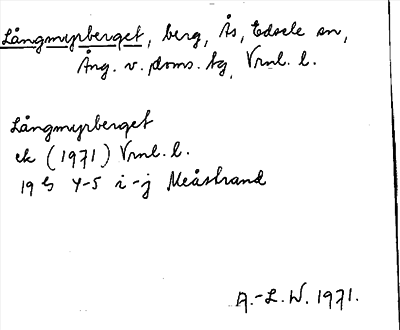 Långmyrberget, berg, Ås, Edsele sn,
Ång. v. doms. tg, Vrnl. l.
Långmyrberget
ek (1971) Vrnl. l.
19 G 4-5 i-j Meåstrand
A.-L. W. 1971.